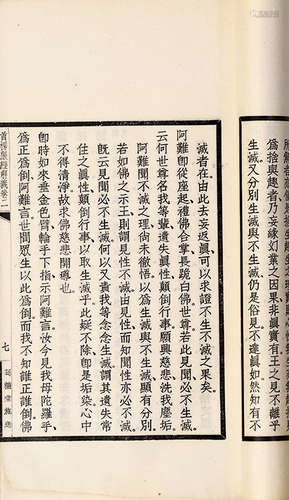 所解者亦僅是
為捨與趣者乃妄緣幻業之因果非眞實有王之見不離乎
生滅又分別生滅與不生滅仍是俗見不達眞如然知有不
滅者在由此去妄扳眞可以求證不生不滅之果矣
阿難卽從座起禮佛合掌長跪白佛世尊若此見聞必不生滅
云何世尊名我等輩遺失眞性顚倒行事願興慈悲洗我塵垢
阿難聞不滅之理尙未徹悟以爲生滅與不生滅顯有分別
若如佛之示王則謂見性不滅由見性而知聞性亦必不滅
旣云見聞必不生滅何以又責我等念念生滅謂其遺失常
住之眞性顚倒行事以取生滅乎此疑不除卽是垢染心中
不得清淨故求佛慈悲開導也
卽時如來垂金色臂輪手下指示阿難言汝今見我母陀羅手
爲正爲倒阿難言世間眾生以此爲倒而我不知誰正誰倒佛
首楞嚴經
卷二
七